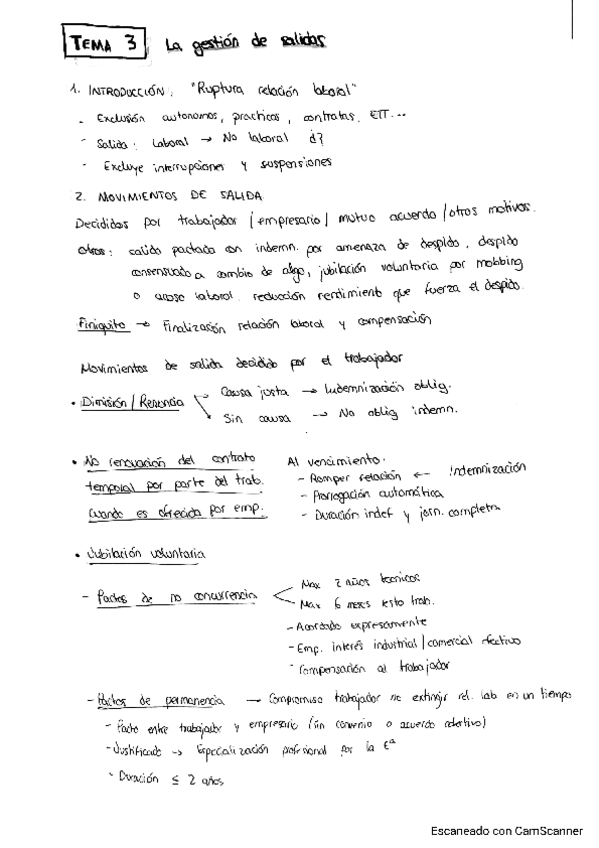 TEMA 3 La gestión de salidas
1. INTRODUCCIÓN: "Ruptura relación laboral"
- Exclusión autonomos, practicas, contratas, ETT...
- Salida: Laboral → No laboral d?
- Excluye interrupciones y suspensiones
2. MOVIMIENTOS DE SALIDA
Decididos por trabajador / empresario / mutuo acuerdo / otros motivos.
Otros: salida pactada con indemn. por amenaza de despido, despido
consensuado a cambio de algo, jubilación voluntaria por mobbing
o acoso laboral. reducción rendimiento que fuerza el despido.
Finiquito → Finalización relación laboral y compensación
Movimientos de salida decidido por el trabajador
• Dimisión / Renuncia
Causa justa → Indemnización oblig.
Sin causa → No oblig indemn.
• No renovación del contrato
temporal por parte del trab.
cuando es ofrecida por emp.
Al vencimiento.
- Romper relación ← Indemnización
- Prorrogación automática
- Duración indef y jorn. completa
• Jubilación voluntaria
- Pactos de no concurrencia
Max 2 años tecnicos
Max 6 meses resto trab.
- Acordado expresamente
- Emp. interés industrial / comercial efectivo
- Compensación al trabajador
- Pactos de permanencia → Compromiso trabajador no extinguir rel. lab en un tiempo
- Pacto entre trabajador y empresario (sin convenio o acuerdo colectivo)
- Justificado → Especialización profesional por la Eª
- Duración ≤ 2 años
Escaneado con CamScanner